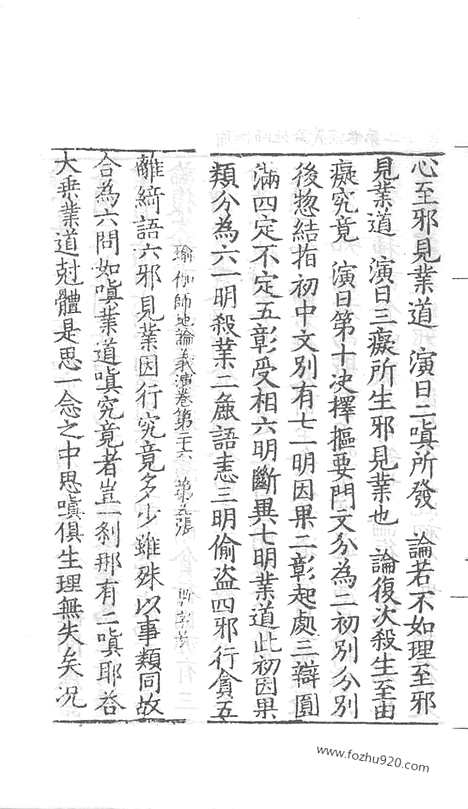 心至邪見業道　演曰二嗔所發　論若不如理至邪
見業道　演曰三癡所生邪見業也　論復次殺生至由
癡究竟　演曰第十决擇摳要門文分為二初別分別
後惣結指初中文別有七一明因果二彰起處三辯圓
滿四定不定五彰受相六明斷異七明業道此初因果
類分為六一明殺業二麁語恚三明偷盜四邪行貪五
瑜伽師地論義演卷第二十六　第五張
離綺語六邪見業因行究竟多少雖殊以事類同故
合為六問如嗔業道嗔究竟者豈一刹那有二嗔耶荅
大乗業道尅體是思一念之中思嗔俱生理無失矣况
www.fozhu920.com